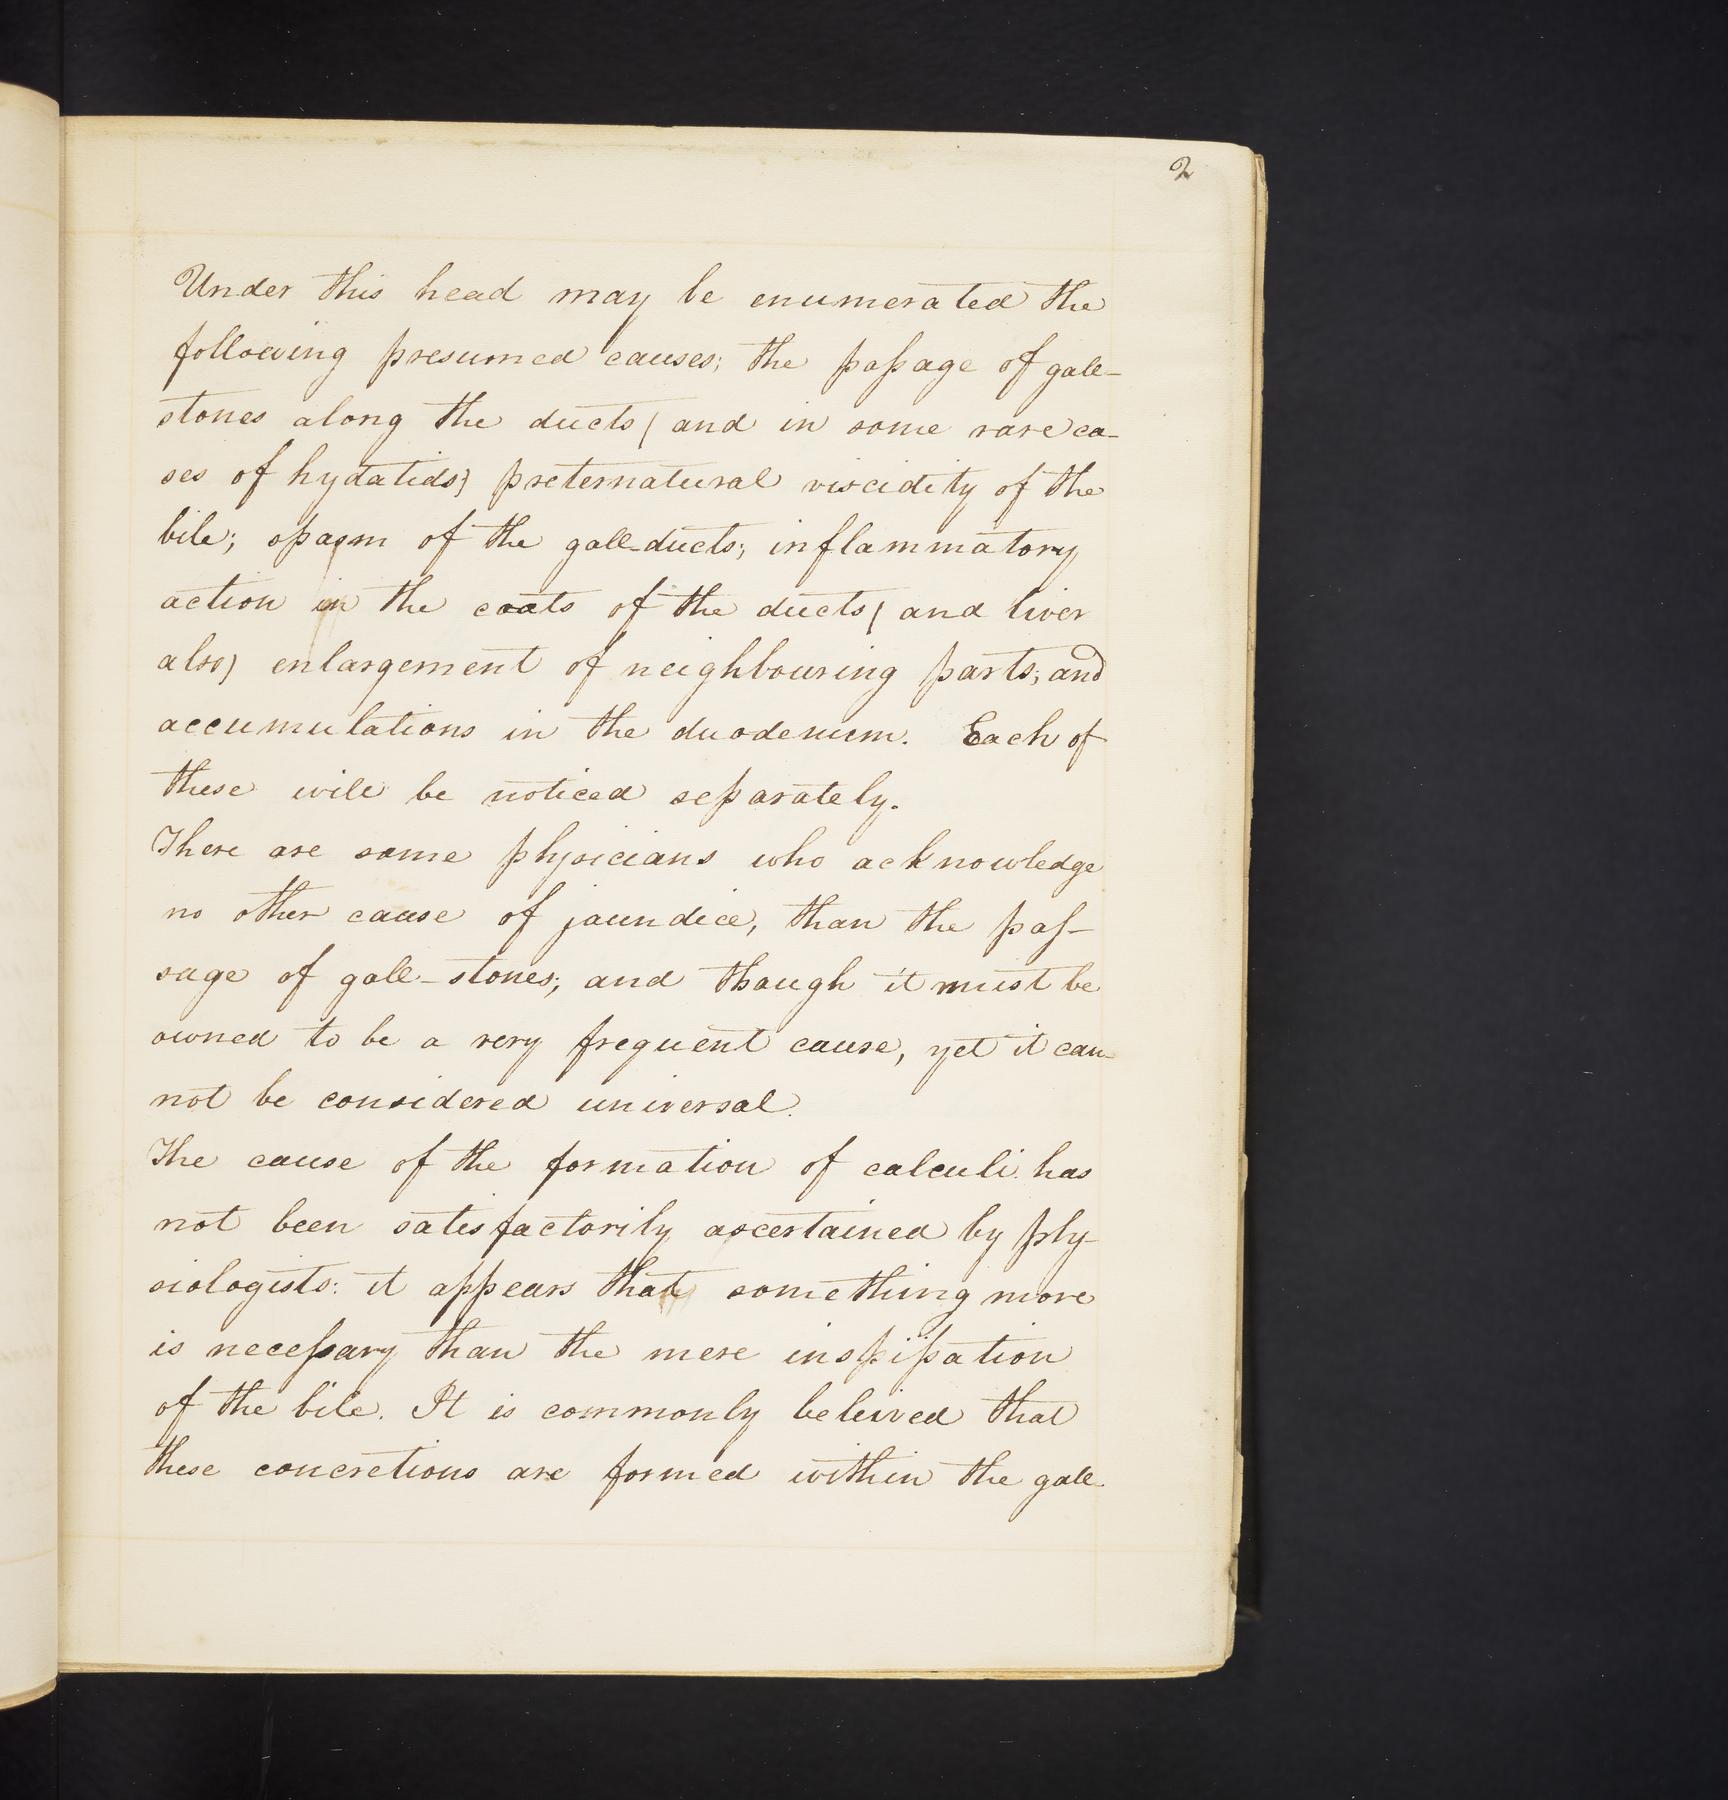 2
Under this head may be enumerated the
following presumed causes; the paſsage of gall-
stones along the ducts (and in some rare ca-
ses of hydatids) preternatural viscidity of the
bile; spasm of the gall-ducts; inflammatory
action in the coats of the ducts (and liver
also) enlargement of neighbouring parts; and
accumulations in the duodenum. Each of
these will be noticed separately.
There are some physicians who acknowledge
no other cause of jaundice, than the paſ-
sage of gall-stones; and though it must be
owned to be a very frequent cause, yet it can-
not be considered universal.
The cause of the formation of calculi has
not been satisfactorily ascertained by phy-
siologists: it appears that something more
is neceſsary than the mere inspiſsation
of the bile. It is commonly beleived that
these concretions are formed within the gall-